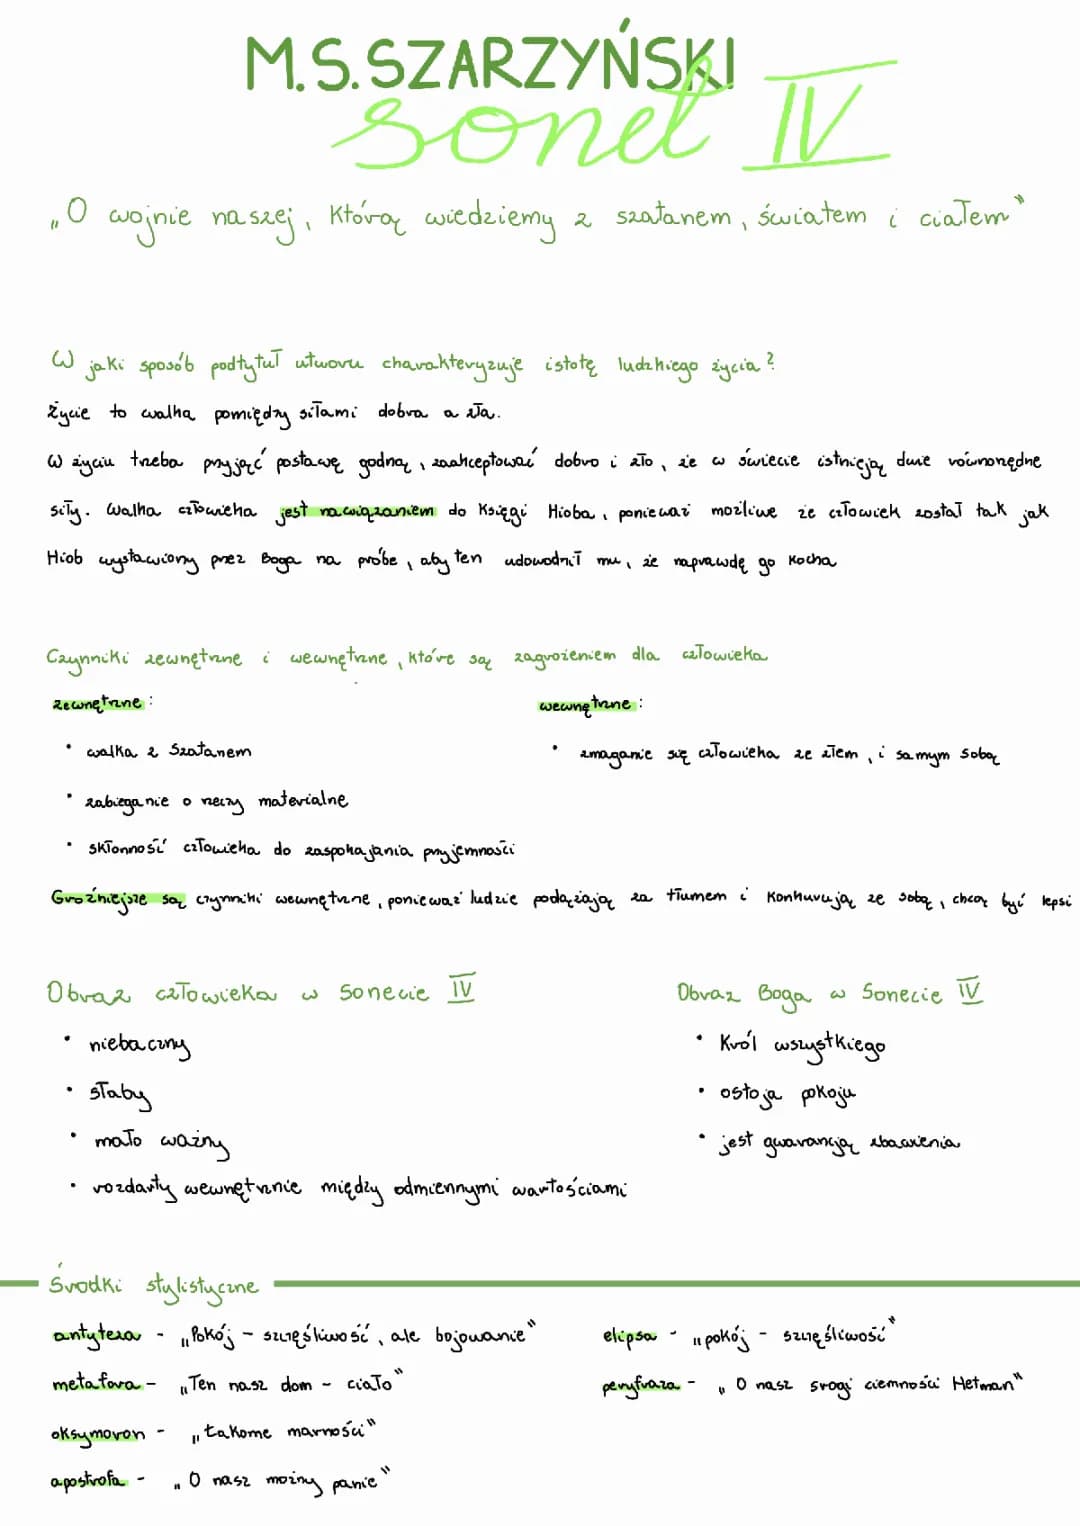 M.S.SZARZYŃSKI
sonet IV
„O wojnie naszej, którą wiedziemy z szatanem, światem i ciałem"
W jaki sposób podtytuł utworu charakteryzuje istotę ludzkiego życia?
Życie to walka pomiędzy siłami dobra a zła.
W życiu trzeba przyjąć postawę godną, zaakceptować dobro i zło, że w świecie istnieją dwie równorzędne
siły. Walka człowieka jest nawiązaniem do Księgi Hioba, ponieważ możliwe że człowiek został tak jak
Hiob wystawiony przez Boga na próbę, aby ten udowodnił mu, że naprawdę go kocha
Czynniki zewnętrzne i wewnętrzne, które są zagrożeniem dla człowieka
zewnętrzne: wewnętrzne:
• walka z Szatanem • zmaganie się człowieka ze złem, i samym sobą
• zabieganie o rzeczy materialne
• skłonność człowieka do zaspokajania przyjemności
Groźniejsze są czynniki wewnętrzne, ponieważ ludzie podążają za tłumem i konkurują ze sobą, chcąc być lepsi
Obraz człowieka w Sonecie IV Obraz Boga w Sonecie IV
• niebaczny • Król wszystkiego
• słaby • ostoja pokoju
• mało ważny • jest gwarancją zbawienia
• rozdarty wewnętrznie między odmiennymi wartościami
Środki stylistyczne
antyteza - „Pokój - szczęśliwość, ale bojowanie" elipsa - „pokój - szczęśliwość"
metafora - „Ten nasz dom - ciało" peryfraza - „O nasz srogi ciemności Hetman"
oksymoron - „łakome marności"
apostrofa - „O nasz możny panie"